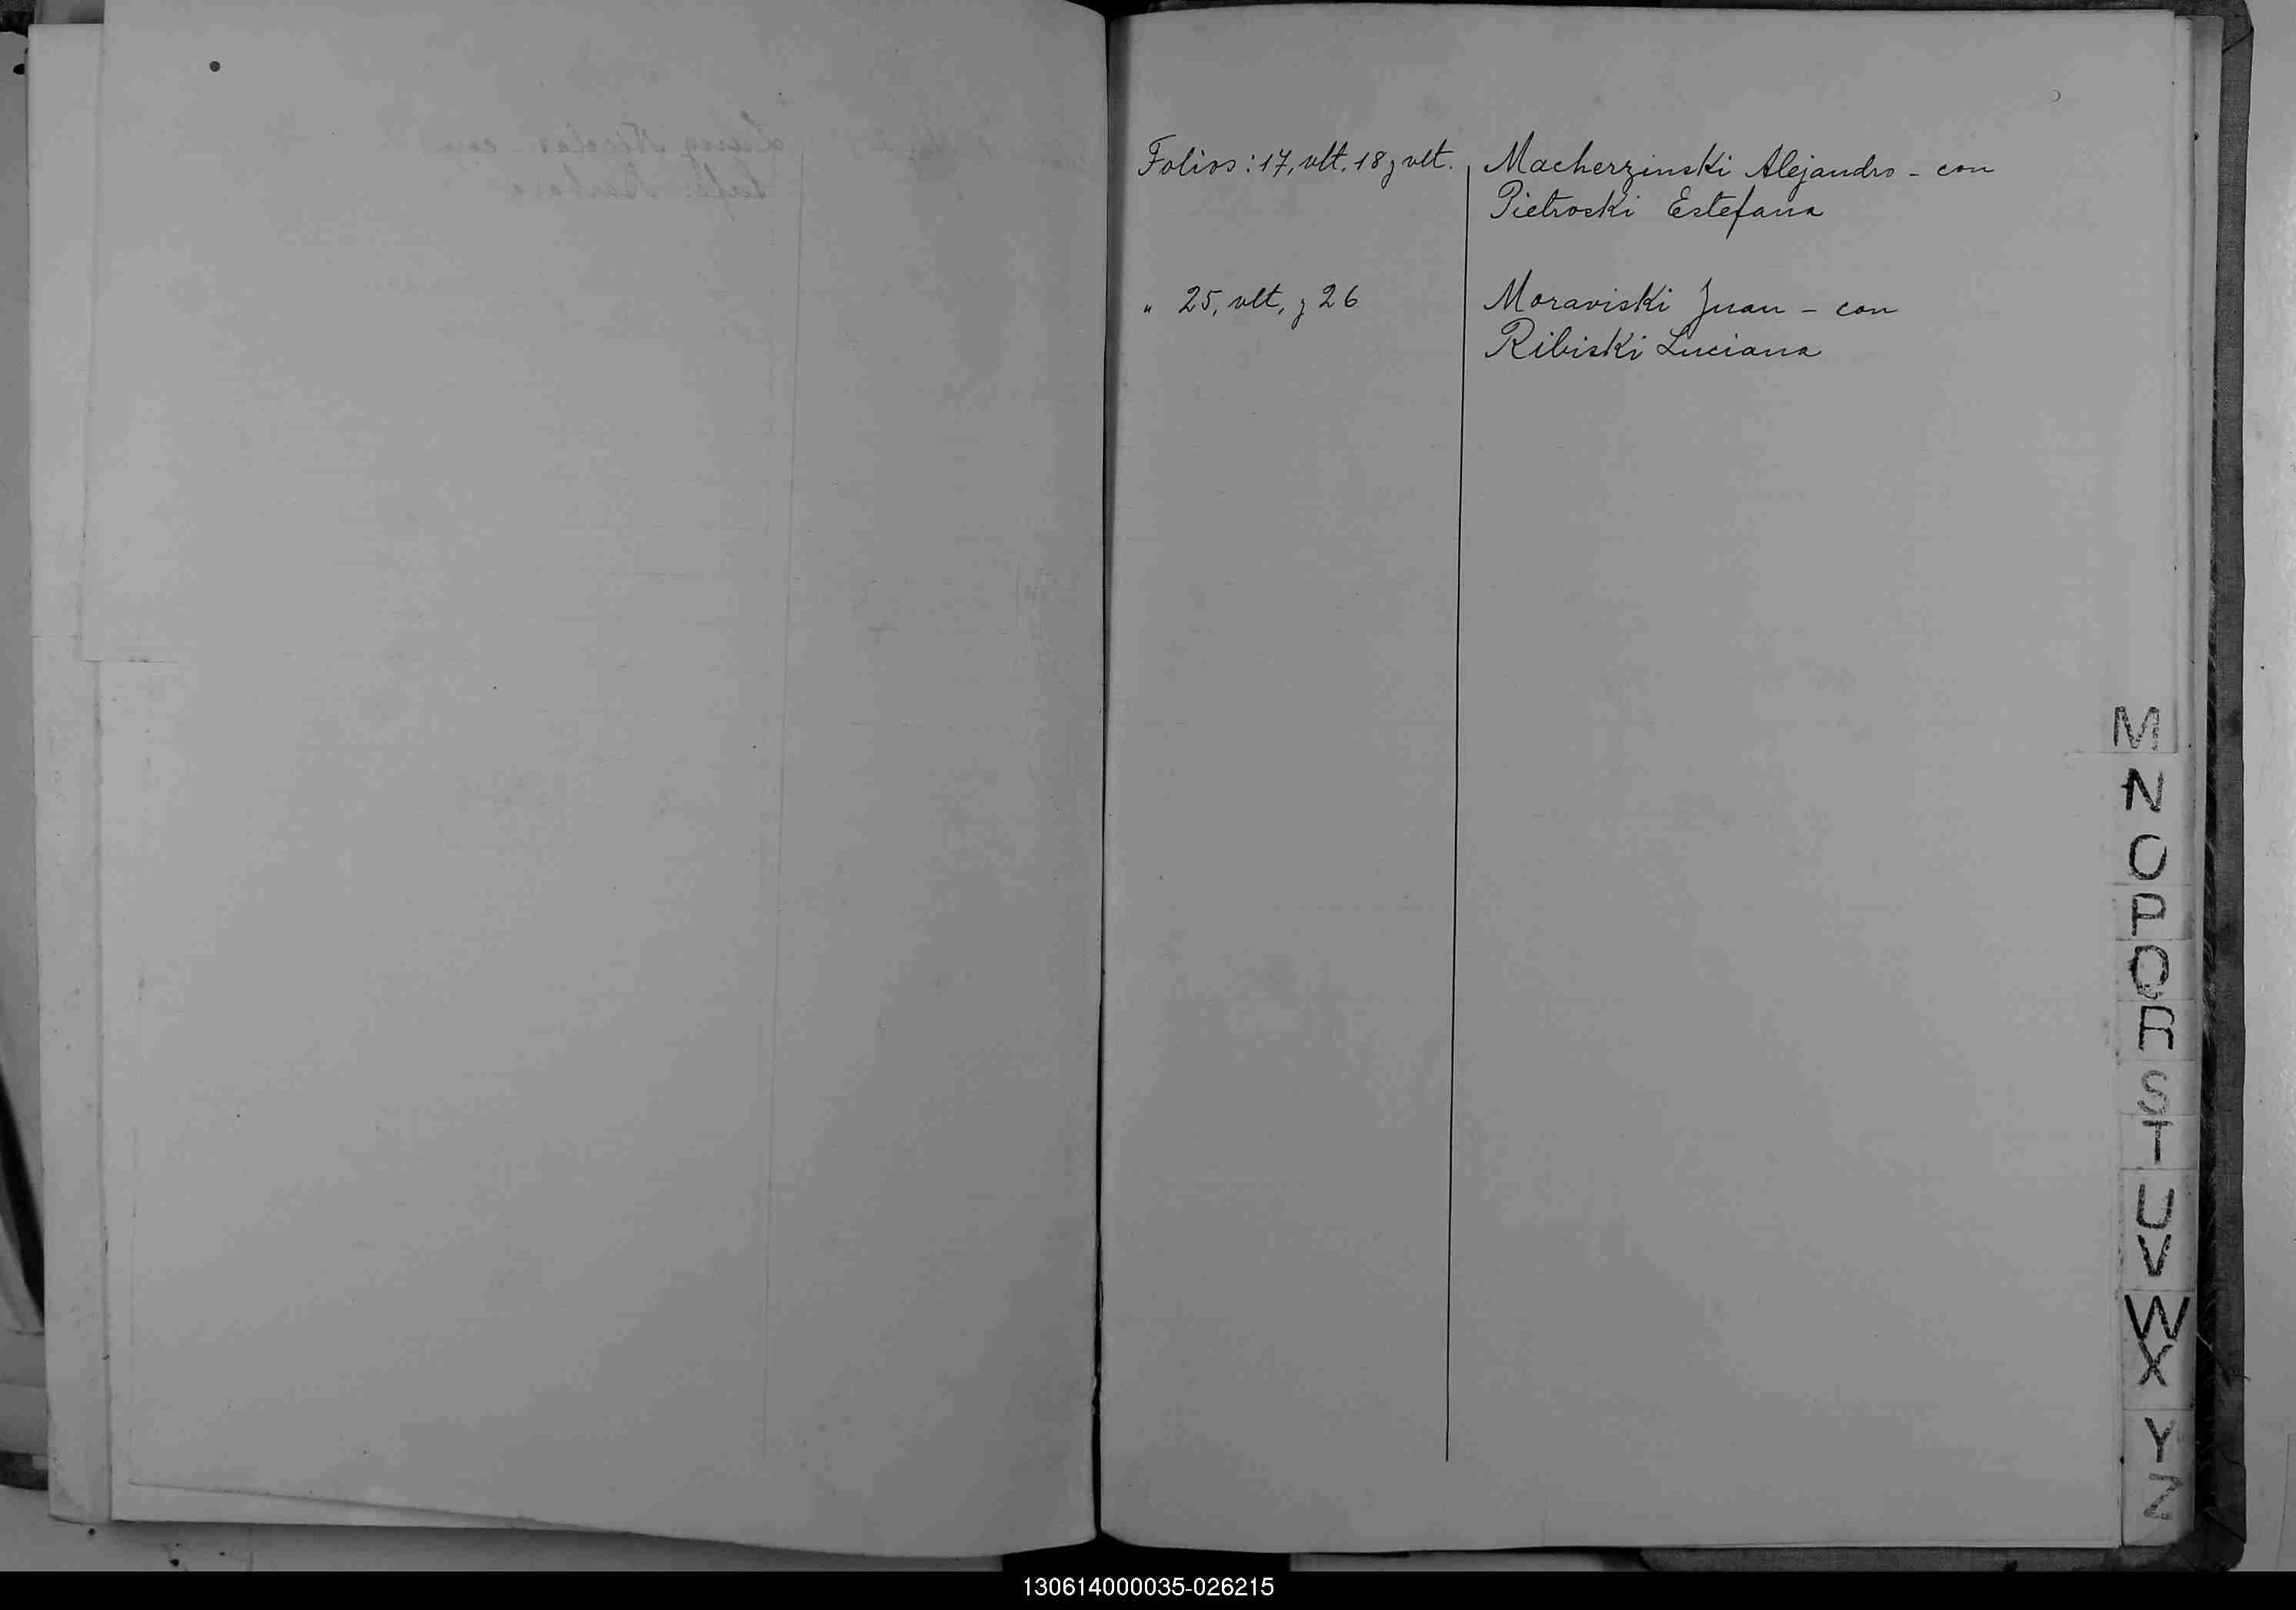 Folios: 17, vlt. 18 y vlt. Macherzinski Alejandro - con
Pietroski Estefana
" 25, vlt, y 26 Moraviski Juan - con
Ribiski Luciana
M
N
O
P
Q
R
S
T
U
V
W
X
Y
Z
130614000035-026215